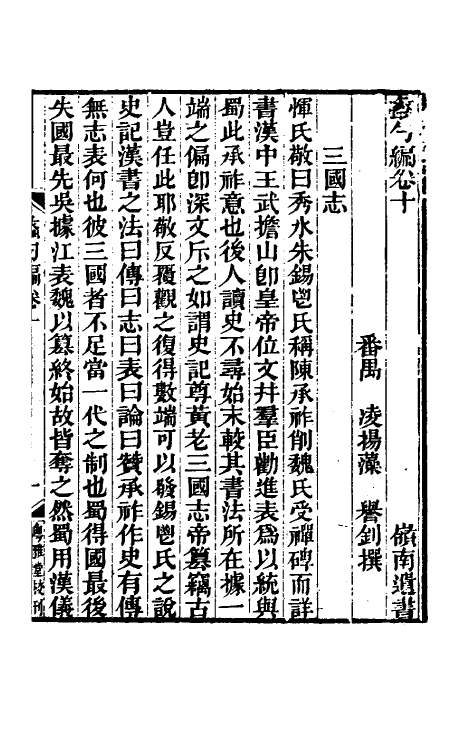 蠡勺編卷十
嶺南遺書
番禺 凌揚藻 譽釗撰
三國志
惲氏敬曰秀水朱錫鬯氏稱陳承祚削魏氏受禪碑而詳
書漢中王武擔山卽皇帝位文幷羣臣勸進表爲以統與
蜀此承祚意也後人讀史不尋始末較其書法所在據一
端之偏卽深文斥之如謂史記尊黃老三國志帝篡竊古
人豈任此耶敬反覆觀之復得數端可以發錫鬯氏之說
史記漢書之法曰傳曰志曰表曰論曰贊承祚作史有傳
無志表何也彼三國者不足當一代之制也蜀得國最後
失國最先吳據江表魏以篡終始故皆奪之然蜀用漢儀
蠡勺編卷十
一
粵雅堂校刊